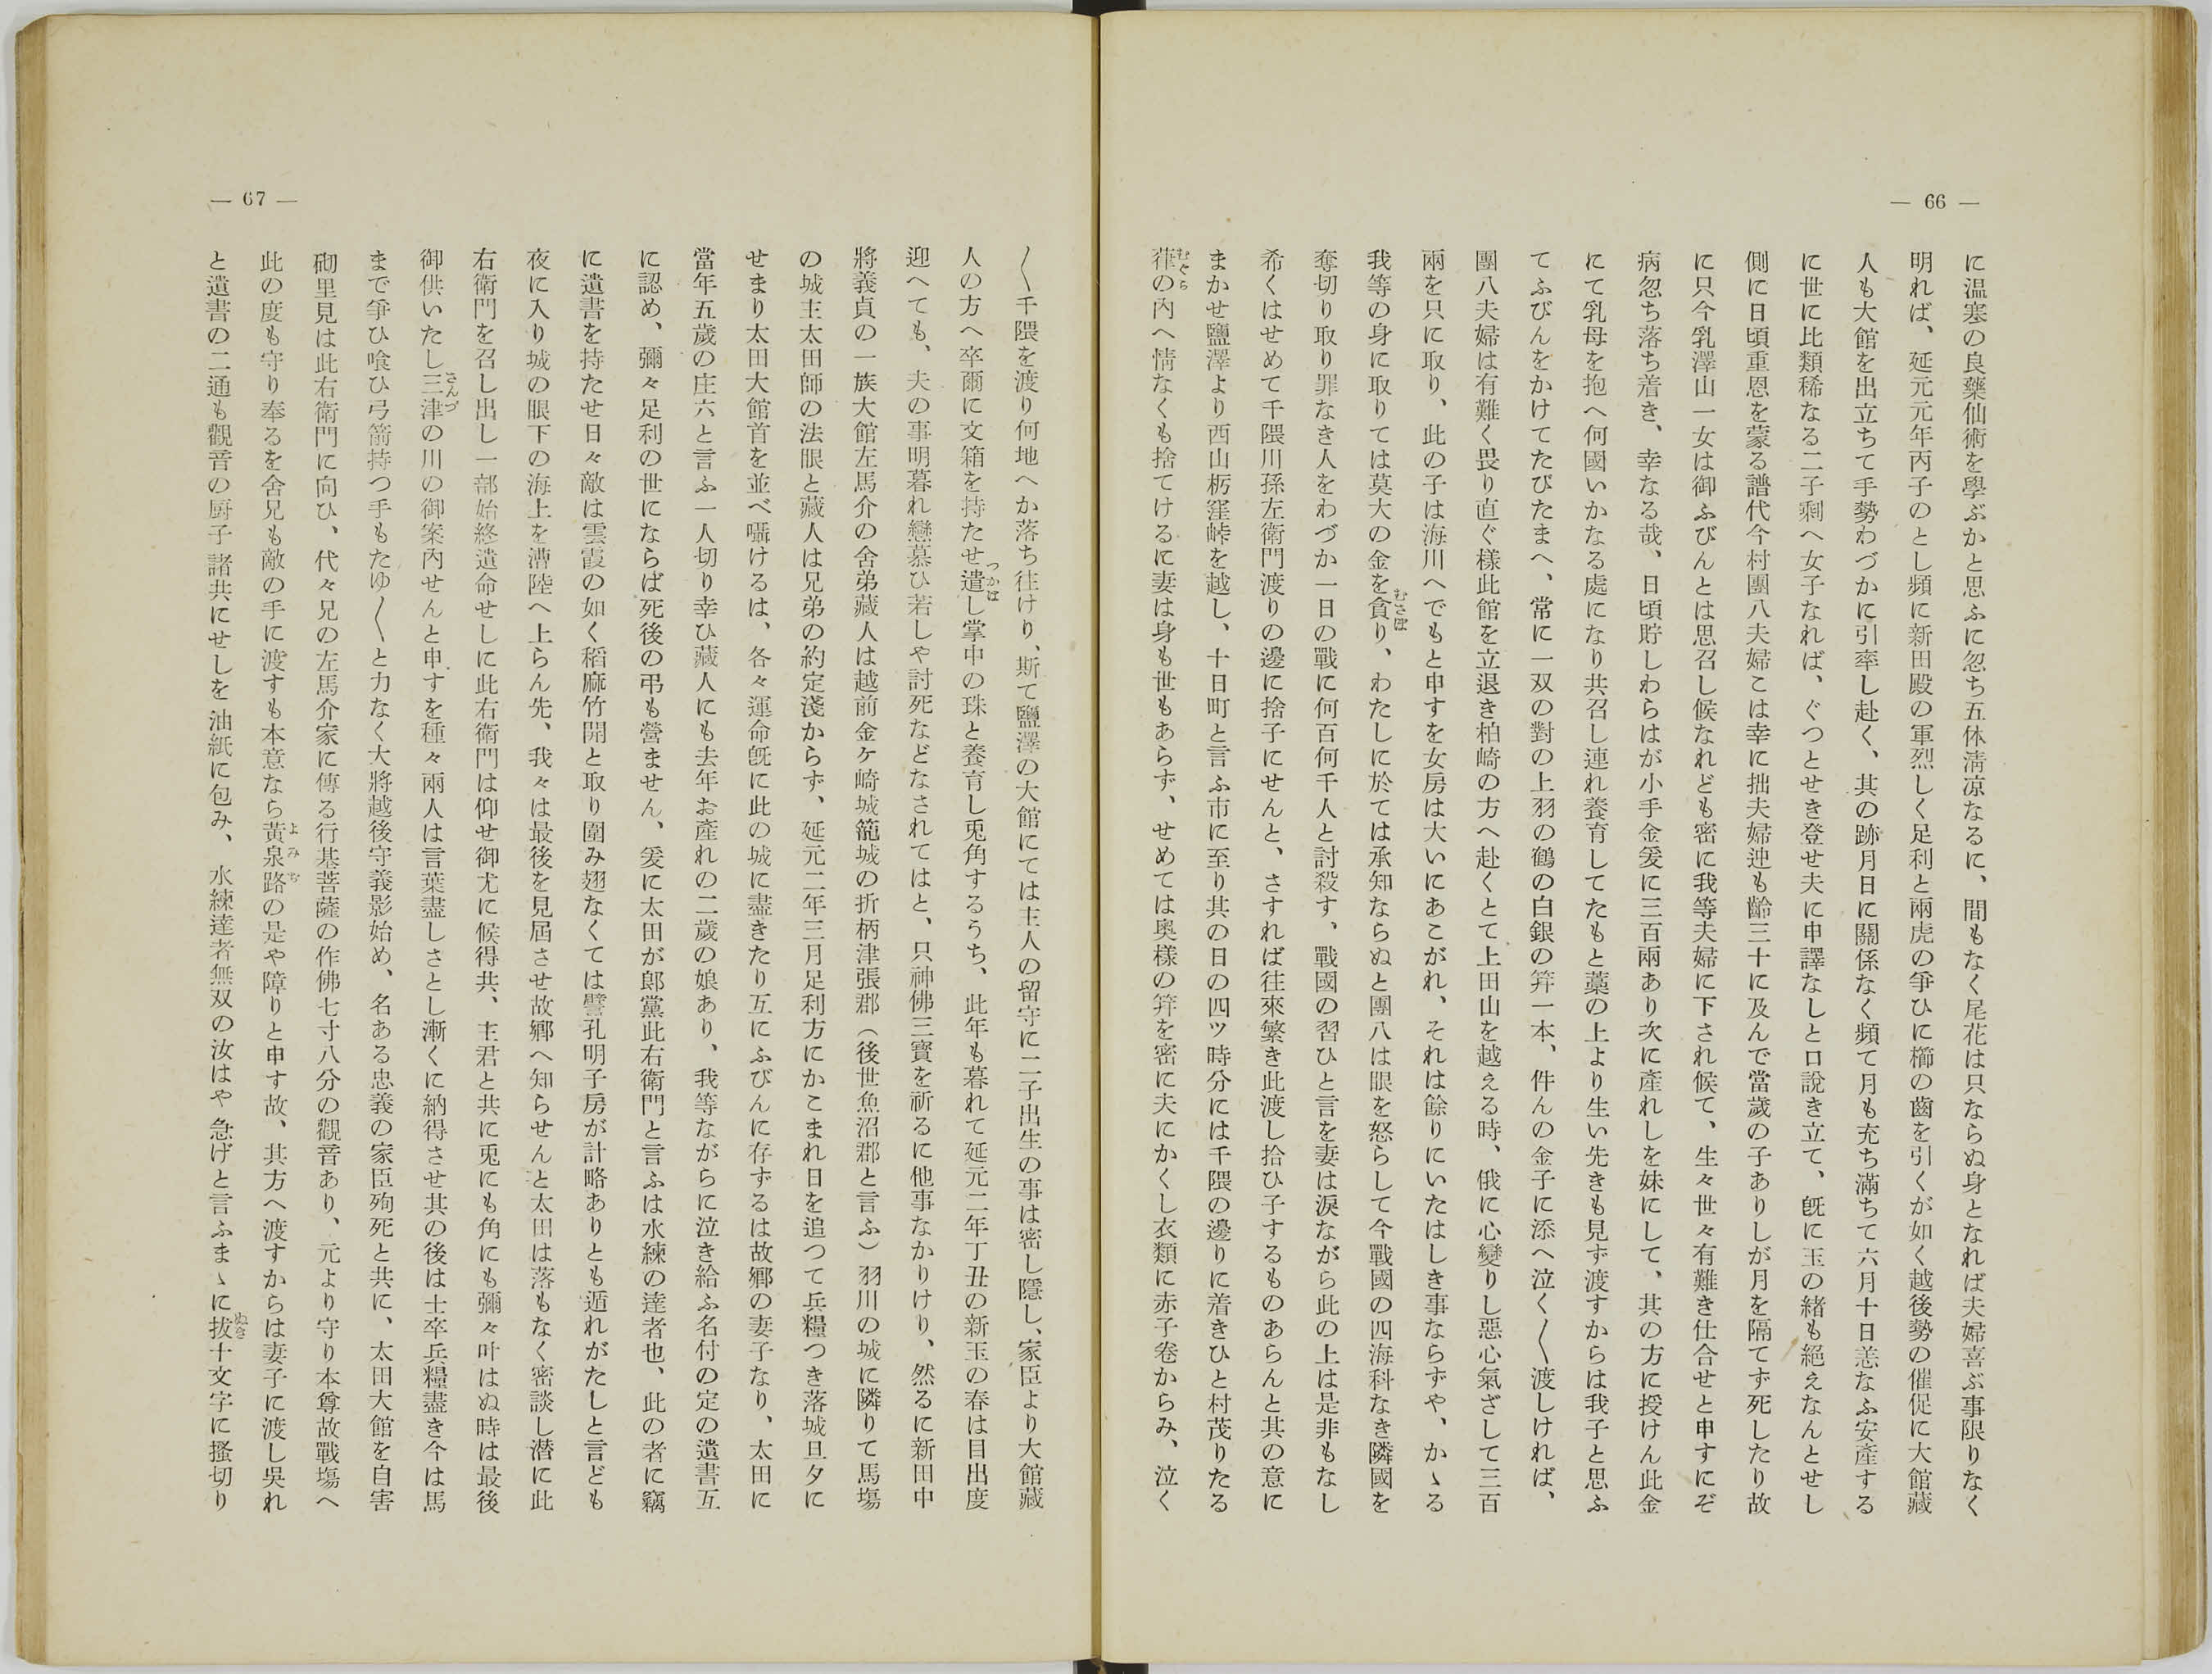 — 66 —
に温塞の良藥仙術を學ぶかと思ふに忽ち五体淸凉なるに、間もなく尾花は只ならぬ身となれば夫婦喜ぶ事限りなく
明れば、延元元年丙子のとし頻に新田殿の軍烈しく足利と兩虎の爭ひに櫛の齒を引くが如く越後勢の催促に大館藏
人も大館を出立ちて手勢わづかに引率し赴く、其の跡月日に關係なく頻て月も充ち滿ちて六月十日恙なふ安產する
に世に比類稀なる二子剩へ女子なれば、ぐつとせき登せ夫に申譯なしと口說き立て、旣に玉の緖も絕えなんとせし
側に日頃重恩を蒙る譜代今村團八夫婦こは幸に拙夫婦迚も齡三十に及んで當歲の子ありしが月を隔てず死したり故
に只今乳澤山一女は御ふびんとは思召し候なれども密に我等夫婦に下され候て、生々世々有難き仕合せと申すにぞ
病忽ち落ち着き、幸なる哉、日頃貯しわらはが小手金爰に三百兩あり次に產れしを妹にして、其の方に授けん此金
にて乳母を抱へ何國いかなる處になり共召し連れ養育してたもと藁の上より生い先きも見ず渡すからは我子と思ふ
てふびんをかけてたびたまへ、常に一双の對の上羽の鶴の白銀の笄一本、件んの金子に添へ泣く〱渡しければ、
團八夫婦は有難く畏り直ぐ樣此館を立退き柏崎の方へ赴くとて上田山を越える時、俄に心變りし惡心氣ざして三百
兩を只に取り、此の子は海川へでもと申すを女房は大いにあこがれ、それは餘りにいたはしき事ならずや、かゝる
我等の身に取りては莫大の金を貪り、わたしに於ては承知ならぬと團八は眼を怒らして今戰國の四海科なき隣國を
奪切り取り罪なき人をわづか一日の戰に何百何千人と討殺す、戰國の習ひと言を妻は淚ながら此の上は是非もなし
希くはせめて千隈川孫左衛門渡りの邊に捨子にせんと、さすれば往來繁き此渡し拾ひ子するものあらんと其の意に
まかせ鹽澤より西山栃窪峠を越し、十日町と言ふ市に至り其の日の四ツ時分には千隈の邊りに着きひと村茂りたる
葎の內へ情なくも捨てけるに妻は身も世もあらず、せめては奧樣の笄を密に夫にかくし衣類に赤子卷からみ、泣く
— 67 —
〱千隈を渡り何地へか落ち往けり、斯て鹽澤の大館にては主人の留守に二子出生の事は密し隱し、家臣より大館藏
人の方へ卒爾に文箱を持たせ遣し掌中の珠と養育し兎角するうち、此年も暮れて延元二年丁丑の新玉の春は目出度
迎へても、夫の事明暮れ戀慕ひ若しや討死などなされてはと、只神佛三寶を祈るに他事なかりけり、然るに新田中
將義貞の一族大館左馬介の舍弟藏人は越前金ケ崎城籠城の折柄津張郡（後世魚沼郡と言ふ）羽川の城に隣りて馬塲
の城主太田師の法眼と藏人は兄弟の約定淺からず、延元二年三月足利方にかこまれ日を追つて兵糧つき落城旦夕に
せまり太田大館首を並べ囁けるは、各々運命旣に此の城に盡きたり互にふびんに存ずるは故鄕の妻子なり、太田に
當年五歲の庄六と言ふ一人切り幸ひ藏人にも去年お產れの二歲の娘あり、我等ながらに泣き給ふ名付の定の遺書互
に認め、彌々足利の世にならば死後の弔も營ません、爰に太田が郎黨此右衛門と言ふは水練の達者也、此の者に竊
に遺書を持たせ日々敵は雲霞の如く稻麻竹開と取り圍み翅なくては譬孔明子房が計略ありとも遁れがたしと言ども
夜に入り城の眼下の海上を漕陸へ上らん先、我々は最後を見屆させ故鄕へ知らせんと太田は落もなく密談し潜に此
右衛門を召し出し一部始終遺命せしに此右衛門は仰せ御尤に候得共、主君と共に兎にも角にも彌々叶はぬ時は最後
御供いたし三津の川の御案內せんと申すを種々兩人は言葉盡しさとし漸くに納得させ其の後は士卒兵糧盡き今は馬
まで爭ひ喰ひ弓箭持つ手もたゆ〱と力なく大將越後守義影始め、名ある忠義の家臣殉死と共に、太田大館を自害
砌里見は此右衛門に向ひ、代々兄の左馬介家に傳る行基菩薩の作佛七寸八分の觀音あり、元より守り本尊故戰塲へ
此の度も守り奉るを舍兄も敵の手に渡すも本意なら黃泉路の是や障りと申す故、其方へ渡すからは妻子に渡し吳れ
と遺書の二通も觀音の厨子諸共にせしを油紙に包み、水練達者無双の汝はや急げと言ふまゝに拔十文字に搔切り